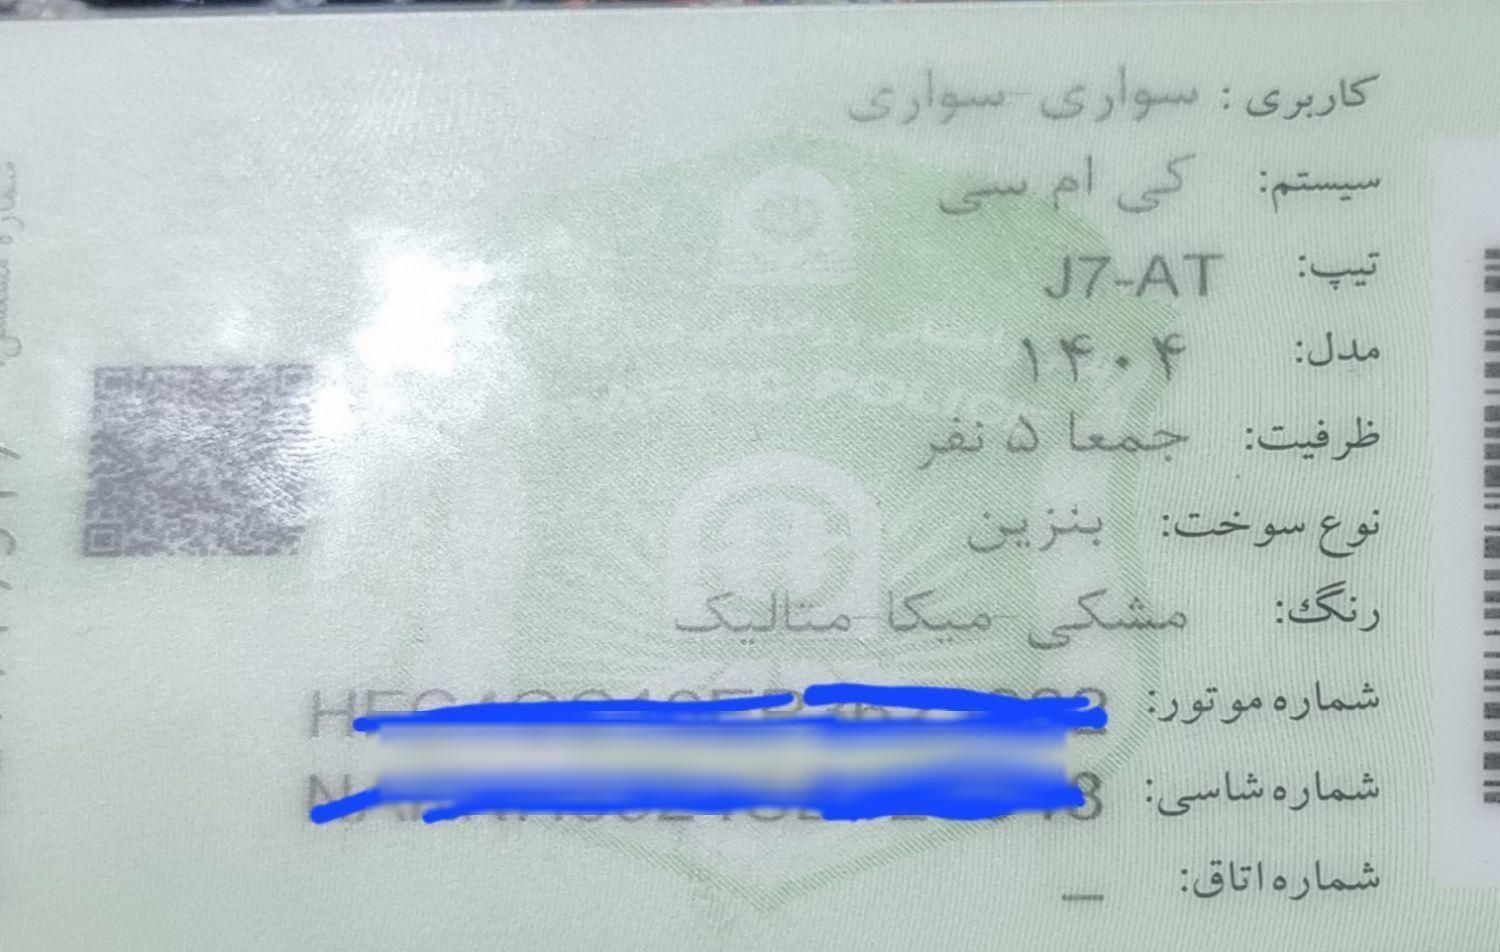 کاربری : سواری-سواری
سیستم: کی ام سی
تیپ: J7-AT
مدل: ۱۴۰۴
ظرفیت: جمعا ۵ نفر
نوع سوخت: بنزین
رنگ: مشکی-میکا-متالیک
شماره موتور:
شماره شاسی:
شماره اتاق: _